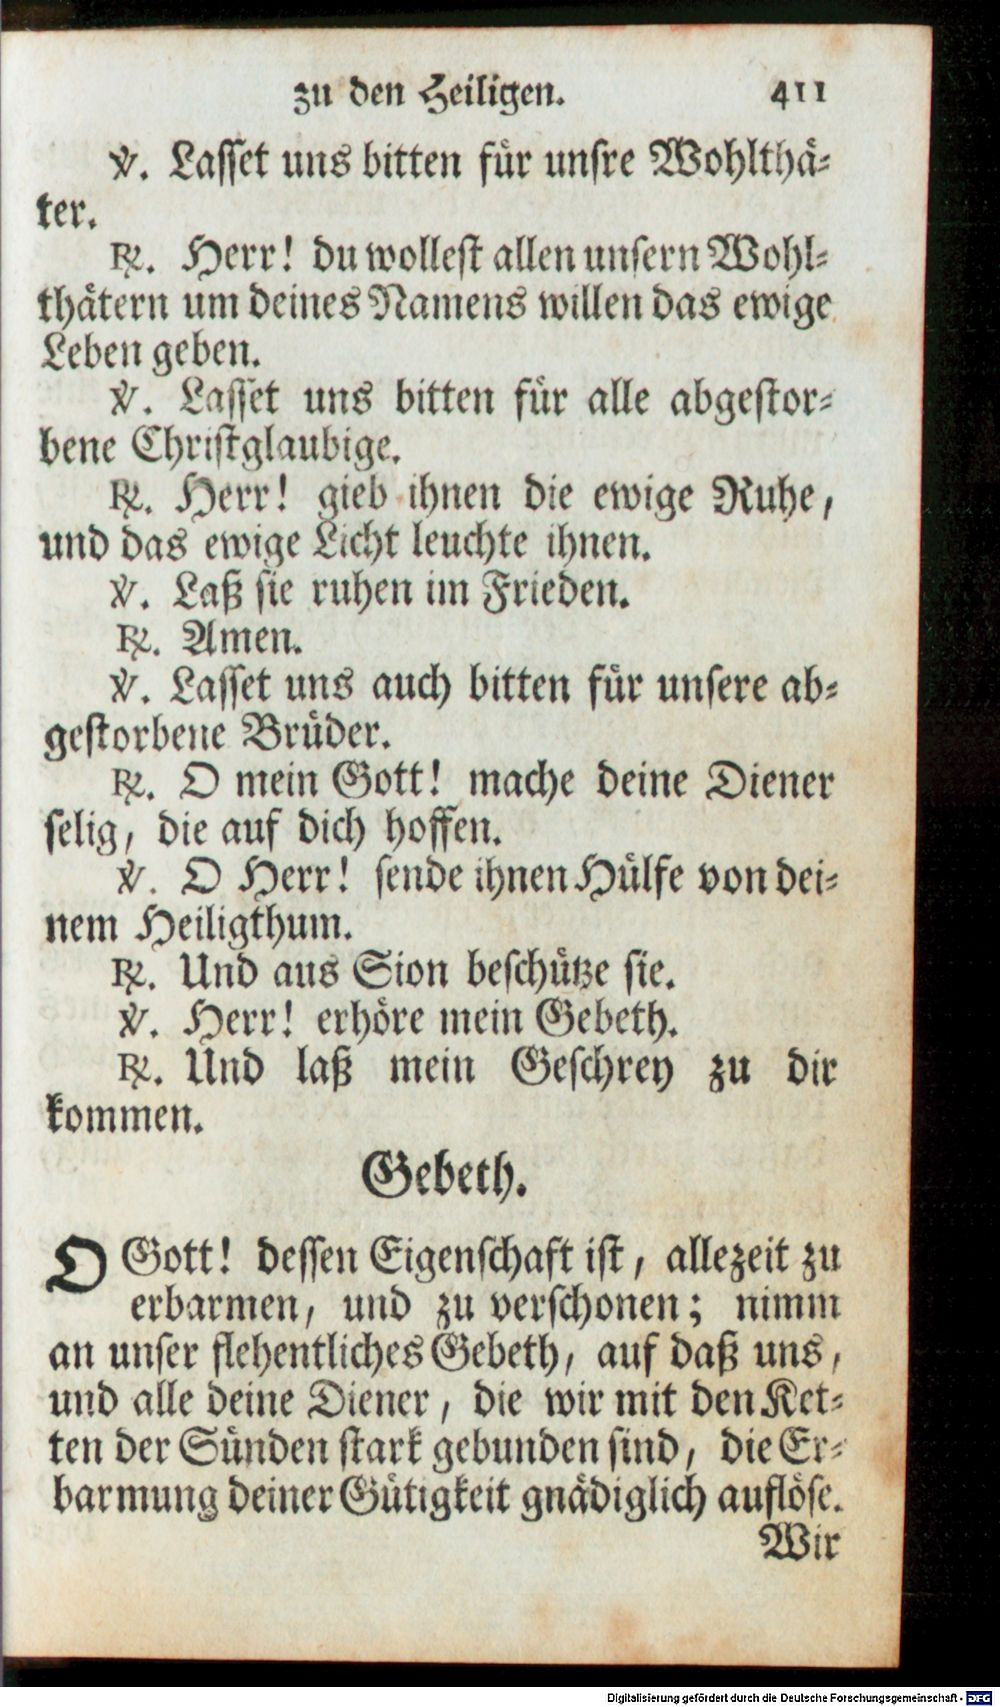 zu den Heiligen. 411
℣. Lasset uns bitten für unsre Wohlthä-
ter.
℟. Herr! du wollest allen unsern Wohl-
thätern um deines Namens willen das ewige
Leben geben.
℣. Lasset uns bitten für alle abgestor-
bene Christglaubige.
℟. Herr! gieb ihnen die ewige Ruhe,
und das ewige Licht leuchte ihnen.
℣. Laß sie ruhen im Frieden.
℟. Amen.
℣. Lasset uns auch bitten für unsere ab-
gestorbene Brüder.
℟. O mein Gott! mache deine Diener
selig, die auf dich hoffen.
℣. O Herr! sende ihnen Hülfe von dei-
nem Heiligthum.
℟. Und aus Sion beschütze sie.
℣. Herr! erhöre mein Gebeth.
℟. Und laß mein Geschrey zu dir
kommen.
Gebeth.
O Gott! dessen Eigenschaft ist, allezeit zu
erbarmen, und zu verschonen; nimm
an unser flehentliches Gebeth, auf daß uns,
und alle deine Diener, die wir mit den Ket-
ten der Sünden stark gebunden sind, die Er-
barmung deiner Gütigkeit gnädiglich auflöse.
Wir
Digitalisierung gefördert durch die Deutsche Forschungsgemeinschaft - DFG